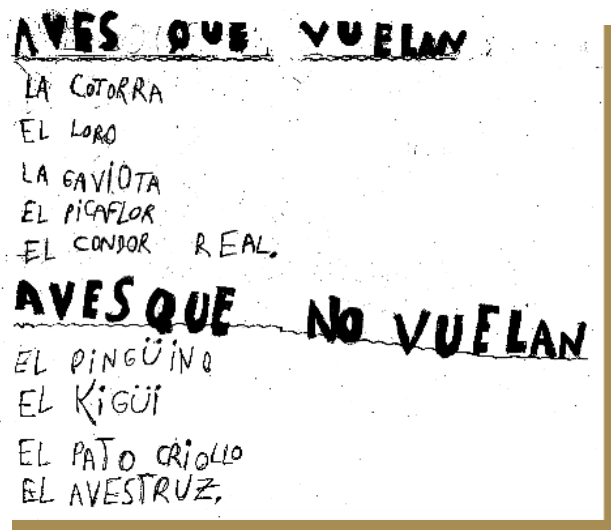 AVES QUE VUELAN
LA COTORRA
EL LORO
LA GAVIOTA
EL PICAFLOR
EL CONDOR REAL.
AVES QUE NO VUELAN
EL PINGÜINO
EL KIGÜI
EL PATO CRIOLLO
EL AVESTRUZ.